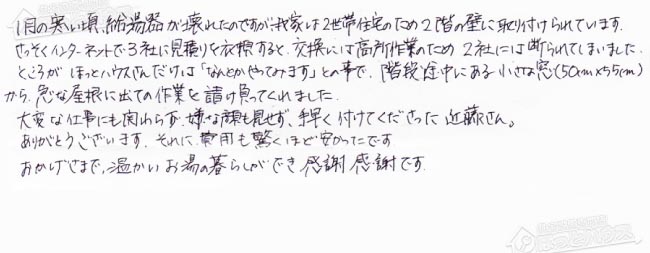 1月の寒い頃、給湯器が壊れたのですが、我家は2世帯住宅のため2階の壁に取り付けられています。
さっそくインターネットで3社に見積りを依頼すると、交換には高所作業のため 2社には断られてしまいました。
ところが ほっとハウスさんだけは「なんとかやってみます」との事で、階段途中にある小さな窓(50cm×55cm)
から、急な屋根に出ての作業を請け負ってくれました。
大変な仕事にも関わらず、嫌な顔も見せず、手早く付けてくださった 近藤さん。
ありがとうございます。それに、費用も驚くほど安かったです
おかげさまで、温かいお湯の暮らしができ 感謝 感謝です。
ほっとハウス